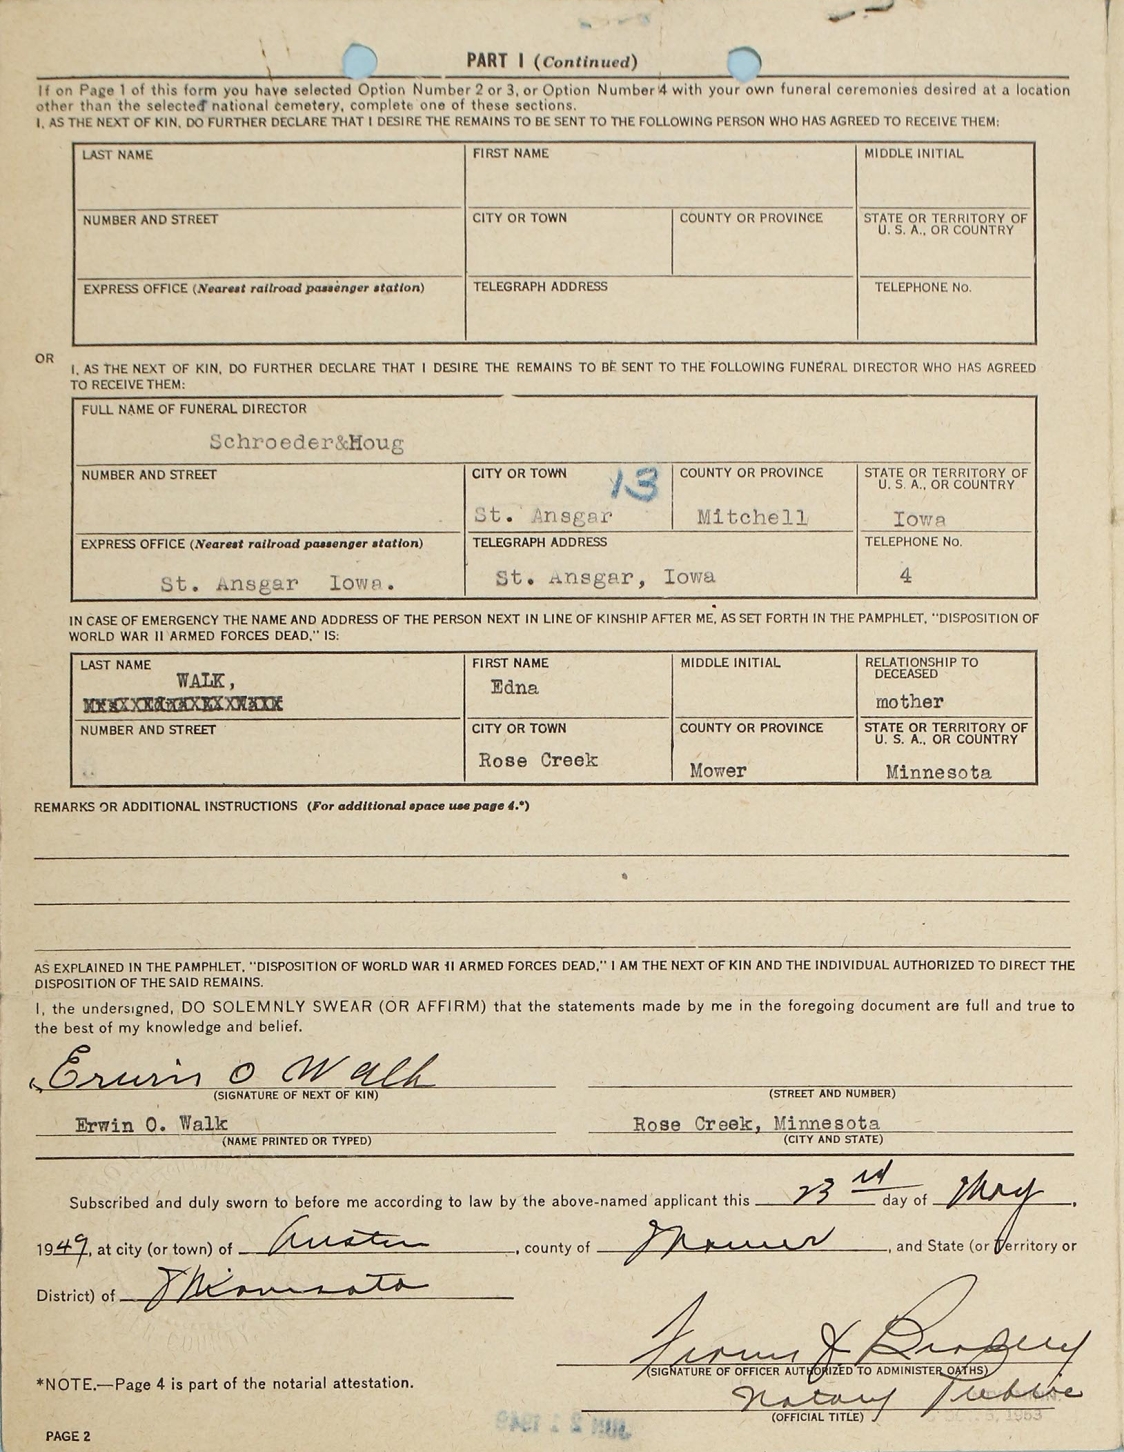 PART I (Continued)
If on Page 1 of this form you have selected Option Number 2 or 3, or Option Number 4 with your own funeral ceremonies desired at a location
other than the selected national cemetery, complete one of these sections.
I, AS THE NEXT OF KIN, DO FURTHER DECLARE THAT I DESIRE THE REMAINS TO BE SENT TO THE FOLLOWING PERSON WHO HAS AGREED TO RECEIVE THEM:
LAST NAME FIRST NAME MIDDLE INITIAL
NUMBER AND STREET CITY OR TOWN COUNTY OR PROVINCE STATE OR TERRITORY OF
U. S. A., OR COUNTRY
EXPRESS OFFICE (Nearest railroad passenger station) TELEGRAPH ADDRESS TELEPHONE No.
OR
I, AS THE NEXT OF KIN, DO FURTHER DECLARE THAT I DESIRE THE REMAINS TO BE SENT TO THE FOLLOWING FUNERAL DIRECTOR WHO HAS AGREED
TO RECEIVE THEM:
FULL NAME OF FUNERAL DIRECTOR
Schroeder&Houg
NUMBER AND STREET CITY OR TOWN 13 COUNTY OR PROVINCE STATE OR TERRITORY OF
U. S. A., OR COUNTRY
St. Ansgar Mitchell Iowa
EXPRESS OFFICE (Nearest railroad passenger station) TELEGRAPH ADDRESS TELEPHONE No.
St. Ansgar Iowa. St. Ansgar, Iowa 4
IN CASE OF EMERGENCY THE NAME AND ADDRESS OF THE PERSON NEXT IN LINE OF KINSHIP AFTER ME, AS SET FORTH IN THE PAMPHLET, "DISPOSITION OF
WORLD WAR II ARMED FORCES DEAD," IS:
LAST NAME FIRST NAME MIDDLE INITIAL RELATIONSHIP TO
DECEASED
WALK, Edna mother
NUMBER AND STREET CITY OR TOWN COUNTY OR PROVINCE STATE OR TERRITORY OF
U. S. A., OR COUNTRY
Rose Creek Mower Minnesota
REMARKS OR ADDITIONAL INSTRUCTIONS (For additional space use page 4.*)
AS EXPLAINED IN THE PAMPHLET, "DISPOSITION OF WORLD WAR II ARMED FORCES DEAD," I AM THE NEXT OF KIN AND THE INDIVIDUAL AUTHORIZED TO DIRECT THE
DISPOSITION OF THE SAID REMAINS.
I, the undersigned, DO SOLEMNLY SWEAR (OR AFFIRM) that the statements made by me in the foregoing document are full and true to
the best of my knowledge and belief.
Erwin O Walk
(SIGNATURE OF NEXT OF KIN) (STREET AND NUMBER)
Erwin O. Walk Rose Creek, Minnesota
(NAME PRINTED OR TYPED) (CITY AND STATE)
Subscribed and duly sworn to before me according to law by the above-named applicant this 23rd day of May,
1949, at city (or town) of Austin, county of Mower, and State (or Territory or
District) of Minnesota
(SIGNATURE OF OFFICER AUTHORIZED TO ADMINISTER OATHS)
*NOTE.—Page 4 is part of the notarial attestation.
Notary Public
(OFFICIAL TITLE)
PAGE 2